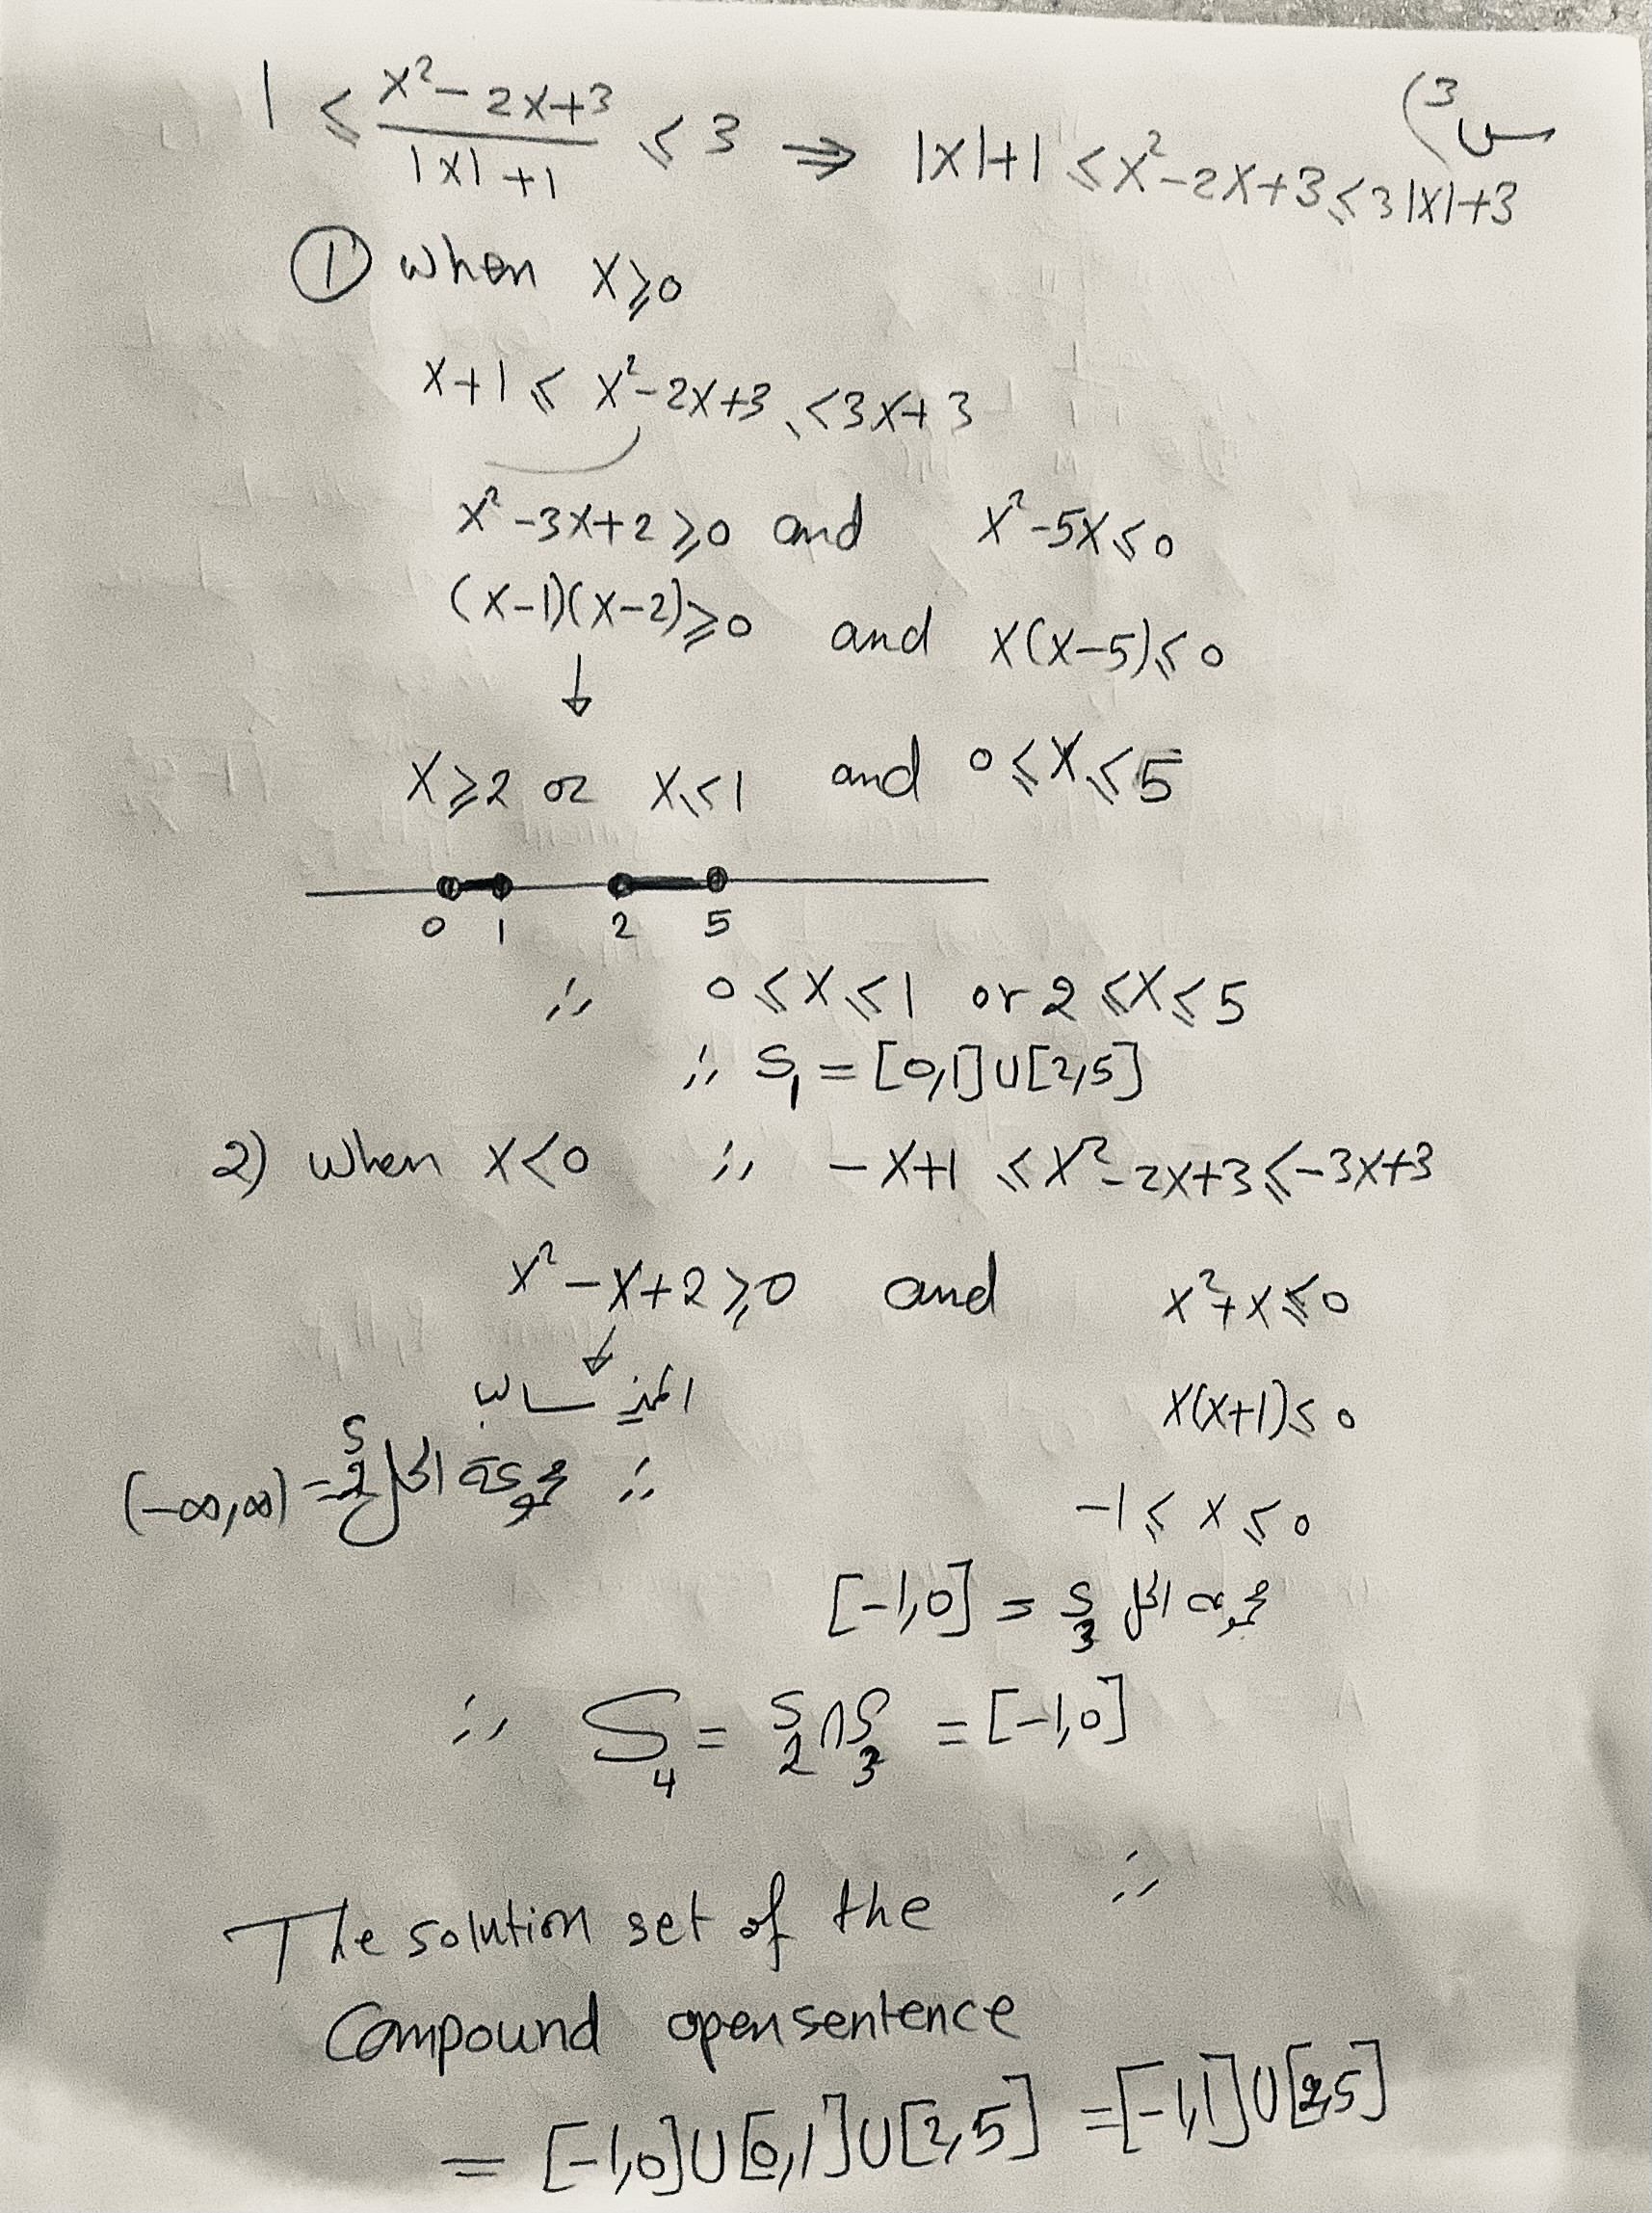 س3)
1 ≤ (x² - 2x + 3)/(|x| + 1) ≤ 3 ⇒ |x|+1 ≤ x² - 2x + 3 ≤ 3|x| + 3
① when x ≥ 0
x + 1 ≤ x² - 2x + 3 ≤ 3x + 3
x² - 3x + 2 ≥ 0 and x² - 5x ≤ 0
(x-1)(x-2) ≥ 0 and x(x-5) ≤ 0
↓
x ≥ 2 or x ≤ 1 and 0 ≤ x ≤ 5
0 1 2 5
∴ 0 ≤ x ≤ 1 or 2 ≤ x ≤ 5
∴ S₁ = [0,1] ∪ [2,5]
2) when x < 0 ∴ -x+1 ≤ x² - 2x + 3 ≤ -3x + 3
x² - x + 2 ≥ 0 and x² + x ≤ 0
↓
المميز سالب x(x+1) ≤ 0
∴ مجموعة الحل S₂ = (-∞,∞)
-1 ≤ x ≤ 0
مجموعة الحل S₃ = [-1,0]
∴ S₄ = S₂ ∩ S₃ = [-1,0]
∴
The solution set of the
Compound open sentence
= [-1,0] ∪ [0,1] ∪ [2,5] = [-1,1] ∪ [2,5]